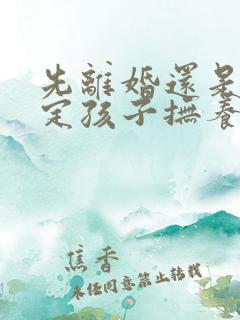 先離婚還是
定孩子撫養
焦香
未经同意禁止转载